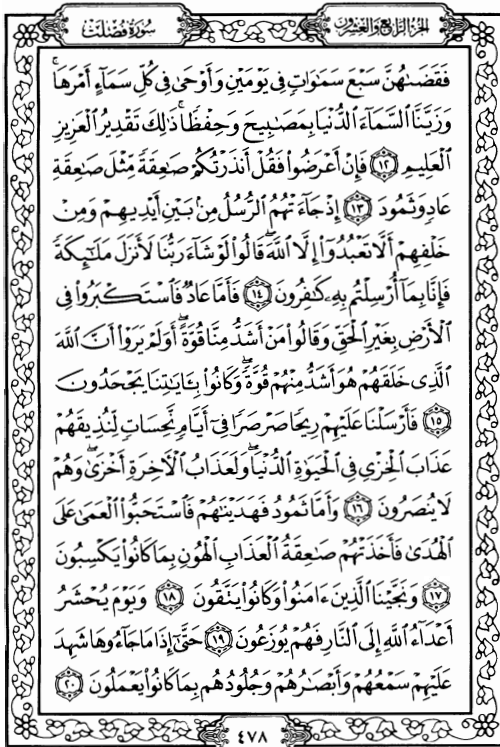 سُورَةُ فُصِّلَتْ
الجُزْءُ الرَّابِعُ وَالعِشْرُونَ
فَقَضَىٰهُنَّ سَبْعَ سَمَٰوَاتٍ فِى يَوْمَيْنِ وَأَوْحَىٰ فِى كُلِّ سَمَآءٍ أَمْرَهَا ۚ
وَزَيَّنَّا ٱلسَّمَآءَ ٱلدُّنْيَا بِمَصَٰبِيحَ وَحِفْظًا ۚ ذَٰلِكَ تَقْدِيرُ ٱلْعَزِيزِ
ٱلْعَلِيمِ ١٢ فَإِنْ أَعْرَضُوا۟ فَقُلْ أَنذَرْتُكُمْ صَٰعِقَةً مِّثْلَ صَٰعِقَةِ
عَادٍ وَثَمُودَ ١٣ إِذْ جَآءَتْهُمُ ٱلرُّسُلُ مِنۢ بَيْنِ أَيْدِيهِمْ وَمِنْ
خَلْفِهِمْ أَلَّا تَعْبُدُوٓا۟ إِلَّا ٱللَّهَ ۖ قَالُوا۟ لَوْ شَآءَ رَبُّنَا لَأَنزَلَ مَلَٰٓئِكَةً
فَإِنَّا بِمَآ أُرْسِلْتُم بِهِۦ كَٰفِرُونَ ١٤ فَأَمَّا عَادٌ فَٱسْتَكْبَرُوا۟ فِى
ٱلْأَرْضِ بِغَيْرِ ٱلْحَقِّ وَقَالُوا۟ مَنْ أَشَدُّ مِنَّا قُوَّةً ۖ أَوَلَمْ يَرَوْا۟ أَنَّ ٱللَّهَ
ٱلَّذِى خَلَقَهُمْ هُوَ أَشَدُّ مِنْهُمْ قُوَّةً ۖ وَكَانُوا۟ بِـَٔايَٰتِنَا يَجْحَدُونَ
١٥ فَأَرْسَلْنَا عَلَيْهِمْ رِيحًا صَرْصَرًا فِىٓ أَيَّامٍ نَّحِسَاتٍ لِّنُذِيقَهُمْ
عَذَابَ ٱلْخِزْىِ فِى ٱلْحَيَوٰةِ ٱلدُّنْيَا ۖ وَلَعَذَابُ ٱلْـَٔاخِرَةِ أَخْزَىٰ ۖ وَهُمْ
لَا يُنصَرُونَ ١٦ وَأَمَّا ثَمُودُ فَهَدَيْنَٰهُمْ فَٱسْتَحَبُّوا۟ ٱلْعَمَىٰ عَلَى
ٱلْهُدَىٰ فَأَخَذَتْهُمْ صَٰعِقَةُ ٱلْعَذَابِ ٱلْهُونِ بِمَا كَانُوا۟ يَكْسِبُونَ
١٧ وَنَجَّيْنَا ٱلَّذِينَ ءَامَنُوا۟ وَكَانُوا۟ يَتَّقُونَ ١٨ وَيَوْمَ يُحْشَرُ
أَعْدَآءُ ٱللَّهِ إِلَى ٱلنَّارِ فَهُمْ يُوزَعُونَ ١٩ حَتَّىٰٓ إِذَا مَا جَآءُوهَا شَهِدَ
عَلَيْهِمْ سَمْعُهُمْ وَأَبْصَٰرُهُمْ وَجُلُودُهُم بِمَا كَانُوا۟ يَعْمَلُونَ ٢٠
٤٧٨